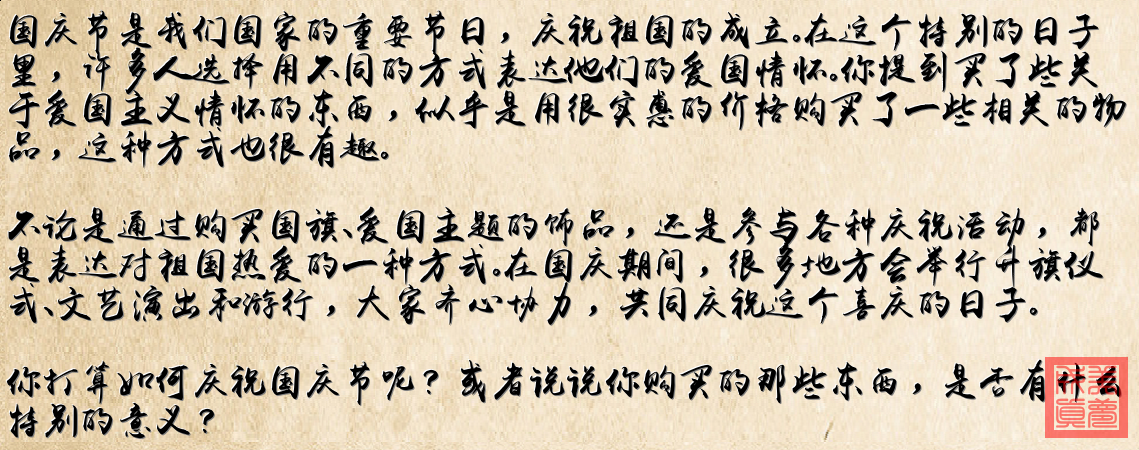 国庆节是我们国家的重要节日，庆祝祖国的成立。在这个特别的日子
里，许多人选择用不同的方式表达他们的爱国情怀。你提到买了些关
于爱国主义情怀的东西，似乎是用很实惠的价格购买了一些相关的物
品，这种方式也很有趣。
不论是通过购买国旗、爱国主题的饰品，还是参与各种庆祝活动，都
是表达对祖国热爱的一种方式。在国庆期间，很多地方会举行升旗仪
式、文艺演出和游行，大家齐心协力，共同庆祝这个喜庆的日子。
你打算如何庆祝国庆节呢？或者说说你购买的那些东西，是否有什么
特别的意义？